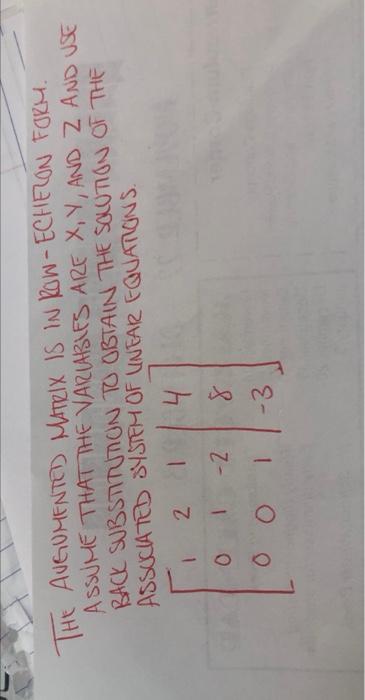 THE AUGUMENTED MATRIX IS IN ROW-ECHELON FORM.
ASSUME THAT THE VARIABLES ARE X, Y, AND Z AND USE
BACK SUBSTITUTION TO OBTAIN THE SOLUTION OF THE
ASSOCIATED SYSTEM OF LINEAR EQUATIONS.
[ 1 2 1 | 4 ]
[ 0 1 -2 | 8 ]
[ 0 0 1 | -3 ]